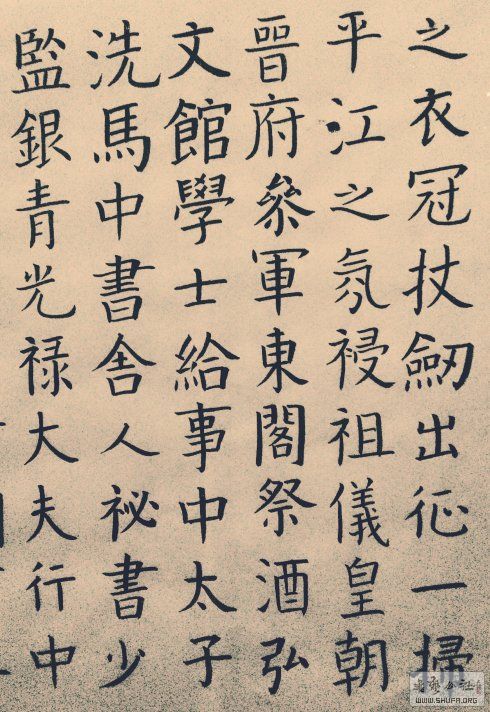 之衣冠杖劒出征一掃
平江之氛祲祖儀皇朝
晉府叅軍東閣祭酒弘
文館學士給事中太子
洗馬中書舍人祕書少
監銀青光禄大夫行中
WWW.SHUFA.ORG